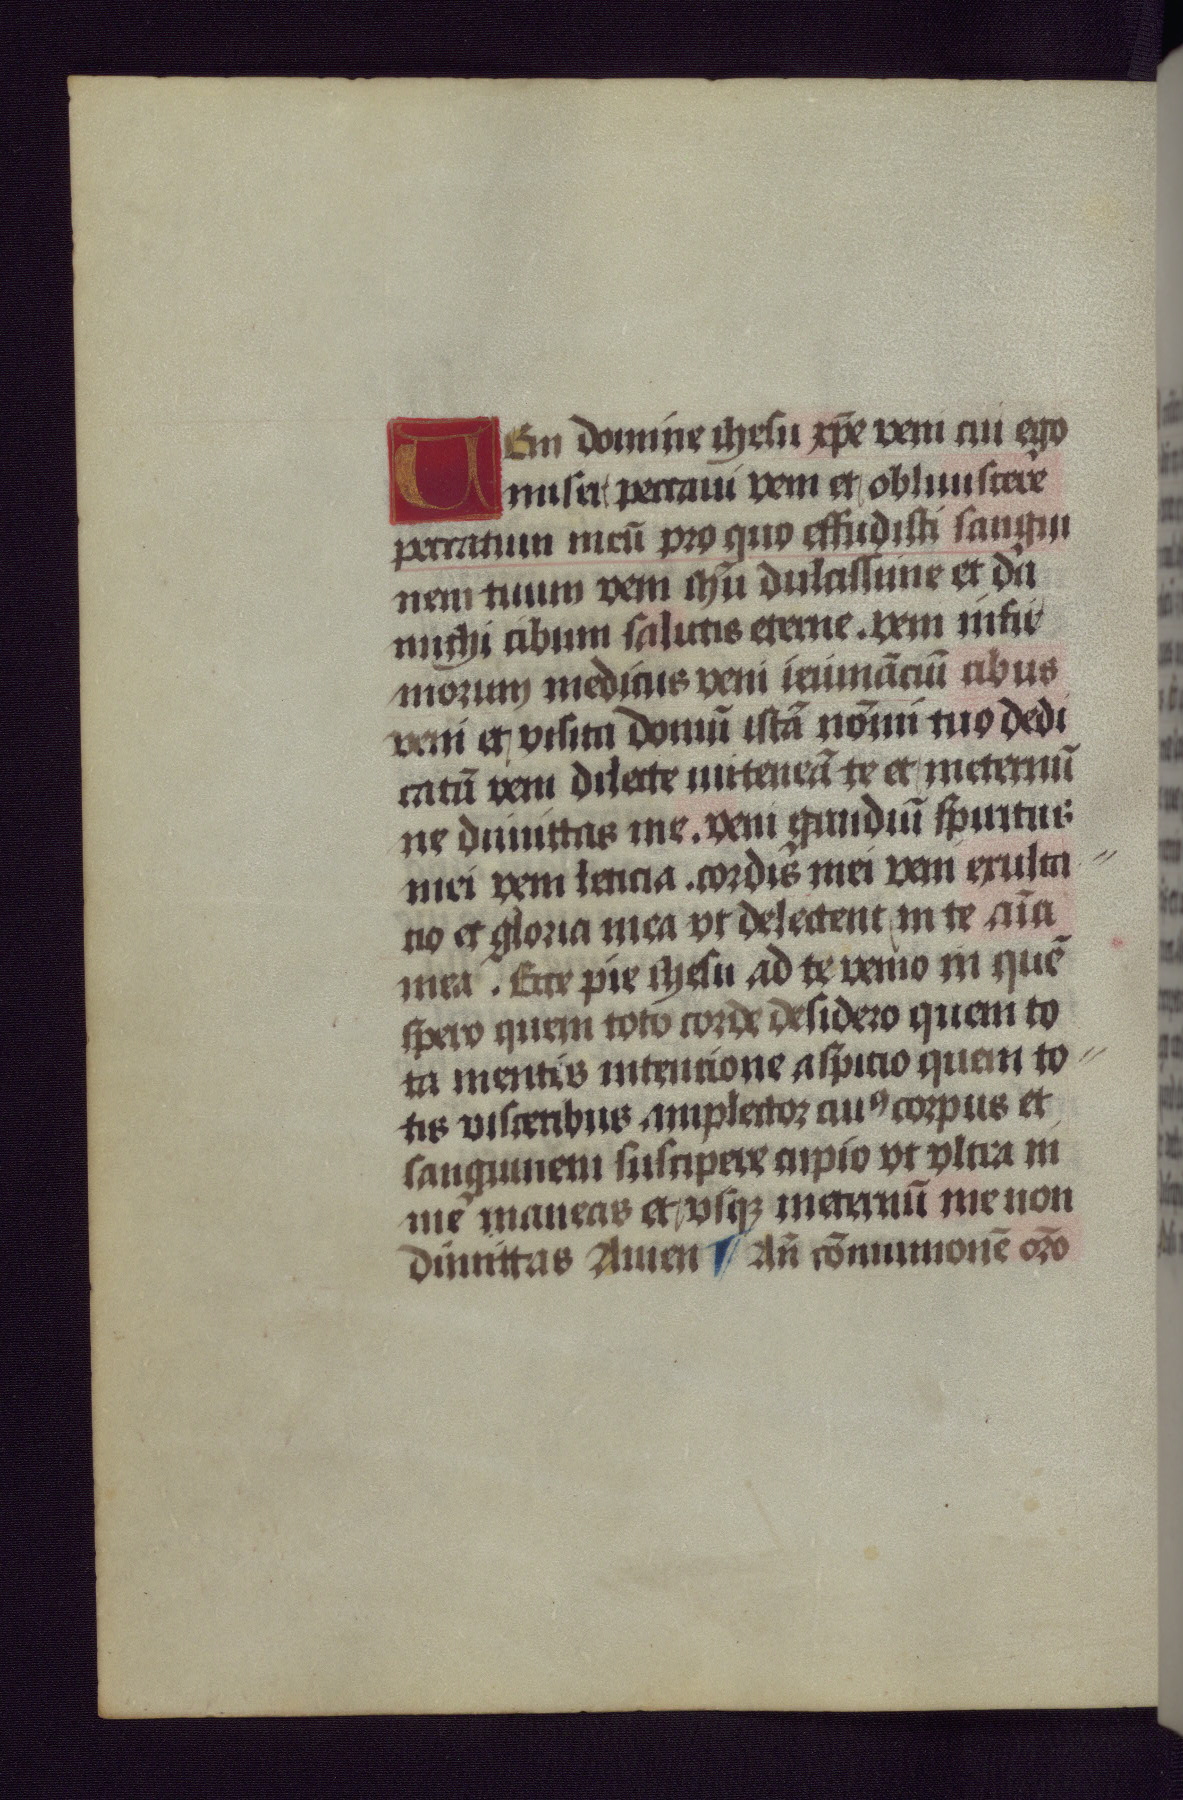 UEni domine ihesu xp̄e veni cui ego
miser peccaui veni et obliuiscere
peccatum meū pro quo effudisti sangui
nem tuum veni ihū dulcissime et da
michi cibum salutis eterne . veni infir
morum medicus veni ieiunāciū cibus
veni et visita domū istā nōmi tuo dedi
catū veni dilecte mi teneā te et ineternū
ne dimittas me . veni gaudiū spiritus
mei veni leticia . cordis mei veni exulta
cio et gloria mea vt delectent in te aīa
mea . Ecce pie ihesu ad te venio in quē
spero quem toto corde desidero quem to
ta mentis intencione aspicio quem to
tis visceribus amplector cuiꝰ corpus et
sanguinem suscipere cupio vt vltra in
me maneas et vsqꝫ ineternū me non
dimittas Amen ¶ An̄ cōmunionē or̄o